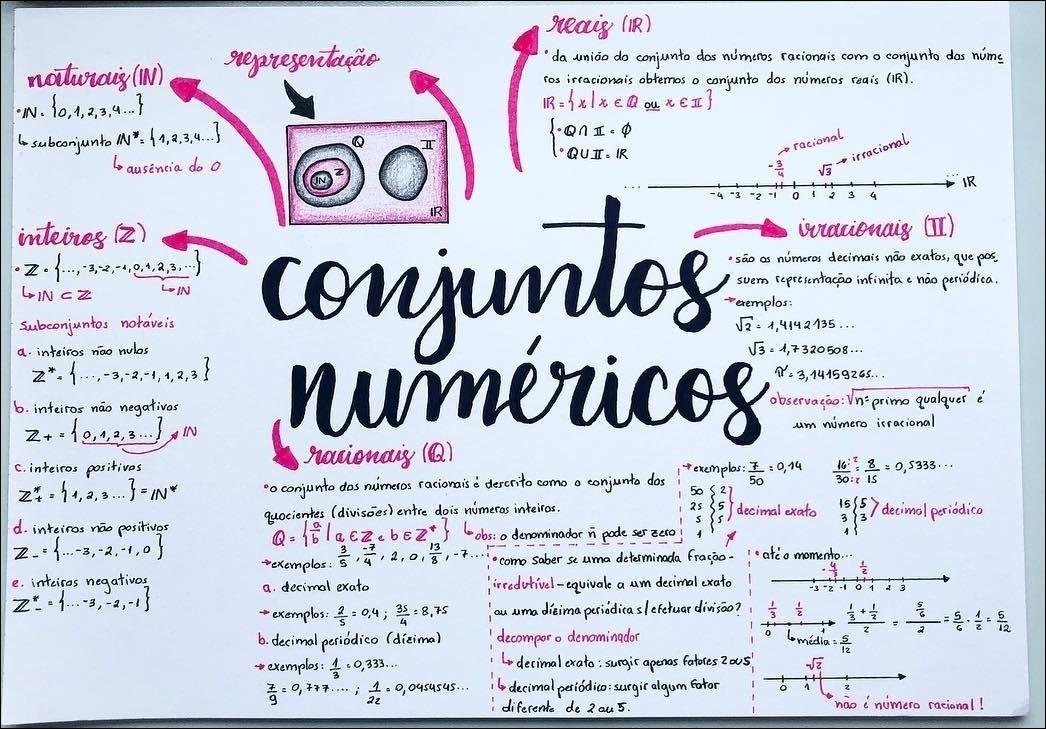 conjuntos
numéricos
representação
Q
II
Z
IN
IR
naturais (IN)
• IN = {0,1,2,3,4...}
↳ subconjunto IN* = {1,2,3,4...}
↳ ausência do 0
inteiros (Z)
• Z = {...,-3,-2,-1,0,1,2,3,...}
↳ IN ⊂ Z ↳ IN
subconjuntos notáveis
a. inteiros não nulos
Z* = {...,-3,-2,-1,1,2,3}
b. inteiros não negativos
Z+ = {0,1,2,3...} → IN
c. inteiros positivos
Z*+ = {1,2,3...} = IN*
d. inteiros não positivos
Z- = {...-3,-2,-1,0}
e. inteiros negativos
Z*- = {...-3,-2,-1}
reais (IR)
• da união do conjunto dos números racionais com o conjunto dos núme
ros irracionais obtemos o conjunto dos números reais (IR).
IR = {x | x ∈ Q ou x ∈ II}
{• Q ∩ II = ∅
• Q ∪ II = IR
-3/4 → racional
√3 → irracional
... -4 -3 -2 -1 0 1 2 3 4 IR
irracionais (II)
• são os números decimais não exatos, que pos
suem representação infinita e não periódica.
→ exemplos:
√2 = 1,4142135...
√3 = 1,7320508...
π = 3,14159265...
observação: √nº primo qualquer é
um número irracional
racionais (Q)
• o conjunto dos números racionais é descrito como o conjunto dos
quocientes (divisões) entre dois números inteiros.
Q = {a/b | a ∈ Z e b ∈ Z*} ↳ obs: o denominador ñ pode ser zero
→ exemplos: 3/5, -7/4, 2, 0, 13/8, -7...
a. decimal exato
→ exemplos: 2/5 = 0,4 ; 35/4 = 8,75
b. decimal periódico (dízima)
→ exemplos: 1/3 = 0,333...
7/9 = 0,777.... ; 1/22 = 0,0454545...
• como saber se uma determinada fração -
irredutível - equivale a um decimal exato
ou uma dízima periódica s/ efetuar divisão?
decompor o denominador
↳ decimal exato: surgir apenas fatores 2 ou 5
↳ decimal periódico: surgir algum fator
diferente de 2 ou 5.
→ exemplos: 7/50 = 0,14
50 2
25 5
5 5
1
decimal exato
16:2/30:2 = 8/15 = 0,5333...
15 5
3 3
1
decimal periódico
• até o momento...
-4/3 1/2
-3 -2 -1 0 1 2 3
1/3 1/2
0 1
↳ média = 5/12
1/3 + 1/2 / 2 = 5/6 / 2 = 5/6 · 1/2 = 5/12
√2
0 1 2
não é número racional!